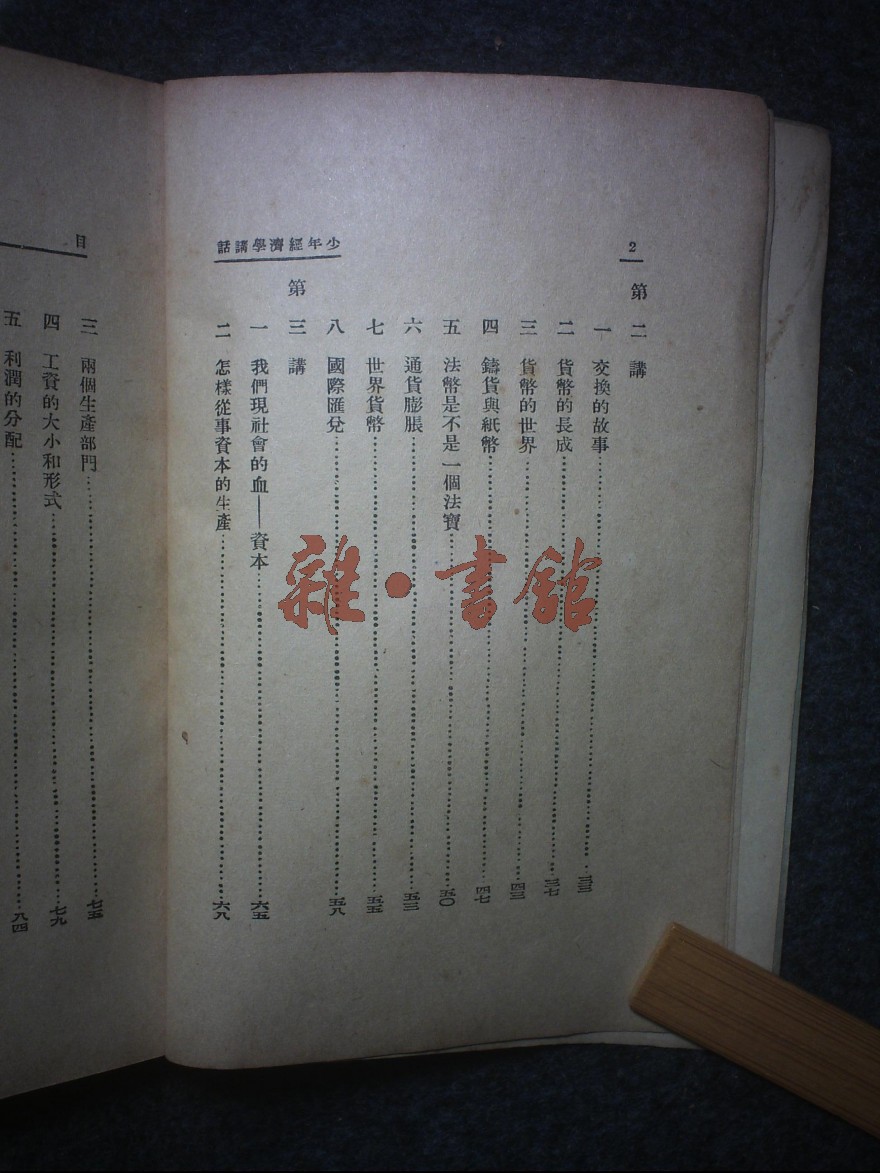 2
少年經濟學講話
第二講
一 交換的故事……三三
二 貨幣的長成……三七
三 貨幣的世界……四三
四 鑄貨與紙幣……四七
五 法幣是不是一個法寶……五〇
六 通貨膨脹……五三
七 世界貨幣……五五
八 國際匯兌……五八
第三講
一 我們現社會的血——資本……六五
二 怎樣從事資本的生產……六八
目
三 兩個生產部門……七五
四 工資的大小和形式……七九
五 利潤的分配……八四
雜·書館